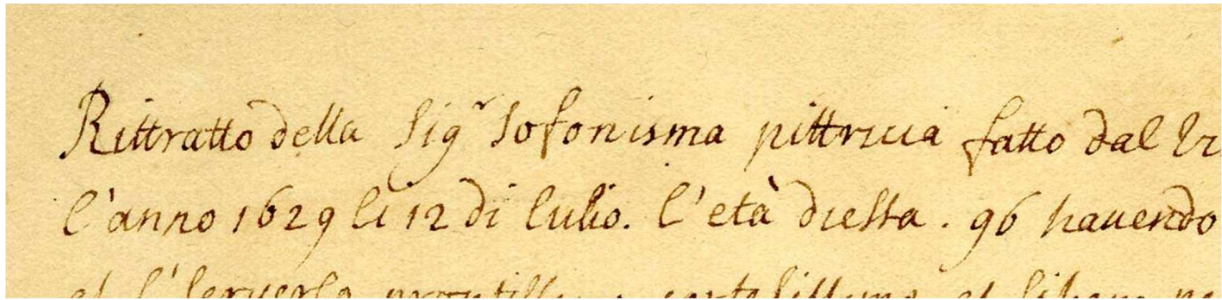 Rittratto della Sigr Sofonisma pittricia fatto dal
l'anno 1629 li 12 di lulio. l'età di essa. 96 havendo
et l'